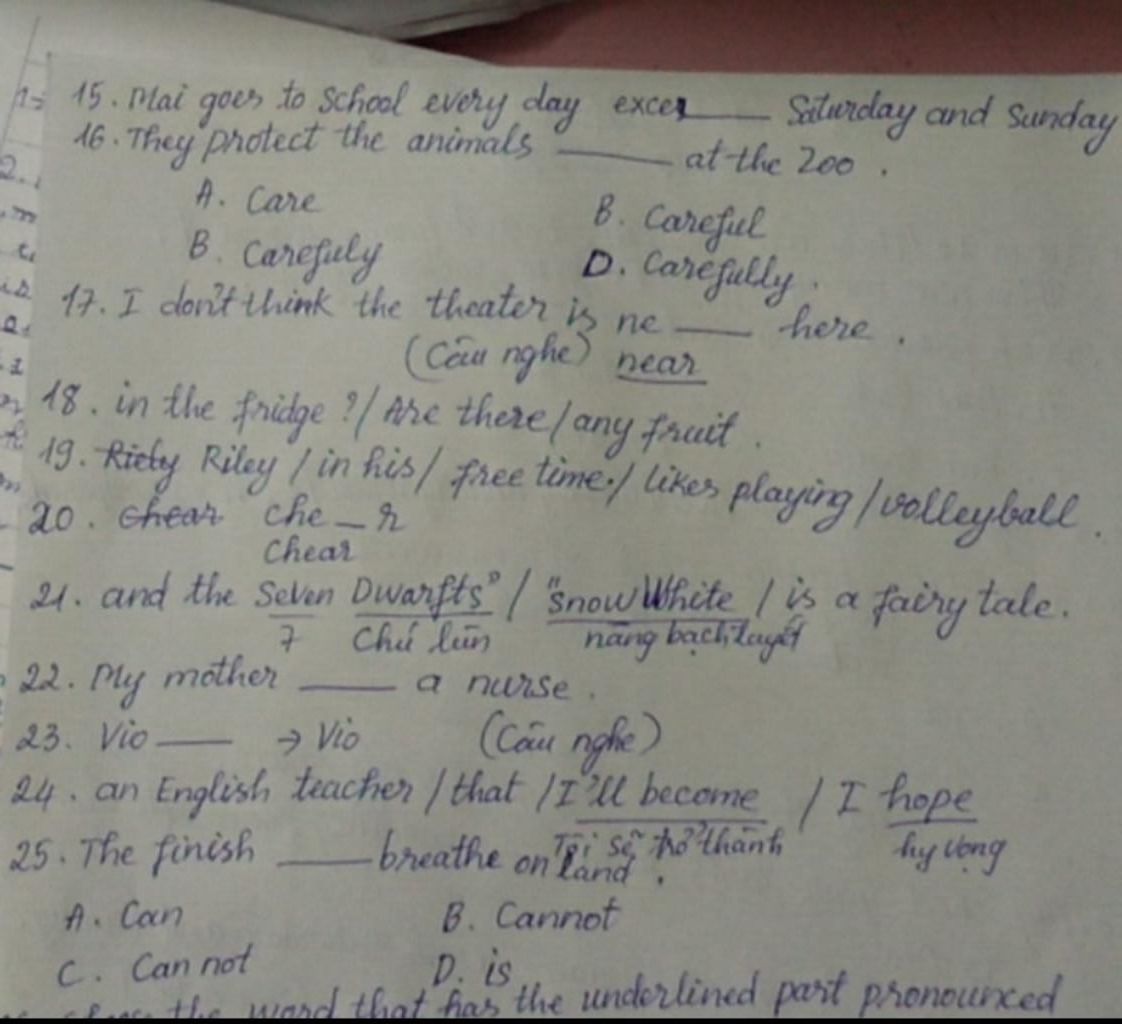 15. Mai goes to School every day excep____ Saturday and Sunday
16. They protect the animals ____ at the Zoo .
A. Care
B. Careful
B. Carefuly
D. Carefully.
17. I don't think the theater is ne ____ here .
(Câu nghe) near
18. in the fridge ?/ Are there / any fruit .
19. Ricly Riley / in his / free time. / likes playing / volleyball .
20. chear che _ r
Chear
21. and the Seven Dwarfts" / "Snow White / is a fairy tale.
7 Chú lùn nàng bạch tuyết
22. My mother ____ a nurse .
23. Vio ____ → Vio (Câu nghe)
24. an English teacher / that / I'll become / I hope
Tôi sẽ trở thành hy vọng
25. The finish ____ breathe on land .
A. Can
B. Cannot
C. Can not
D. is
the word that has the underlined part pronounced